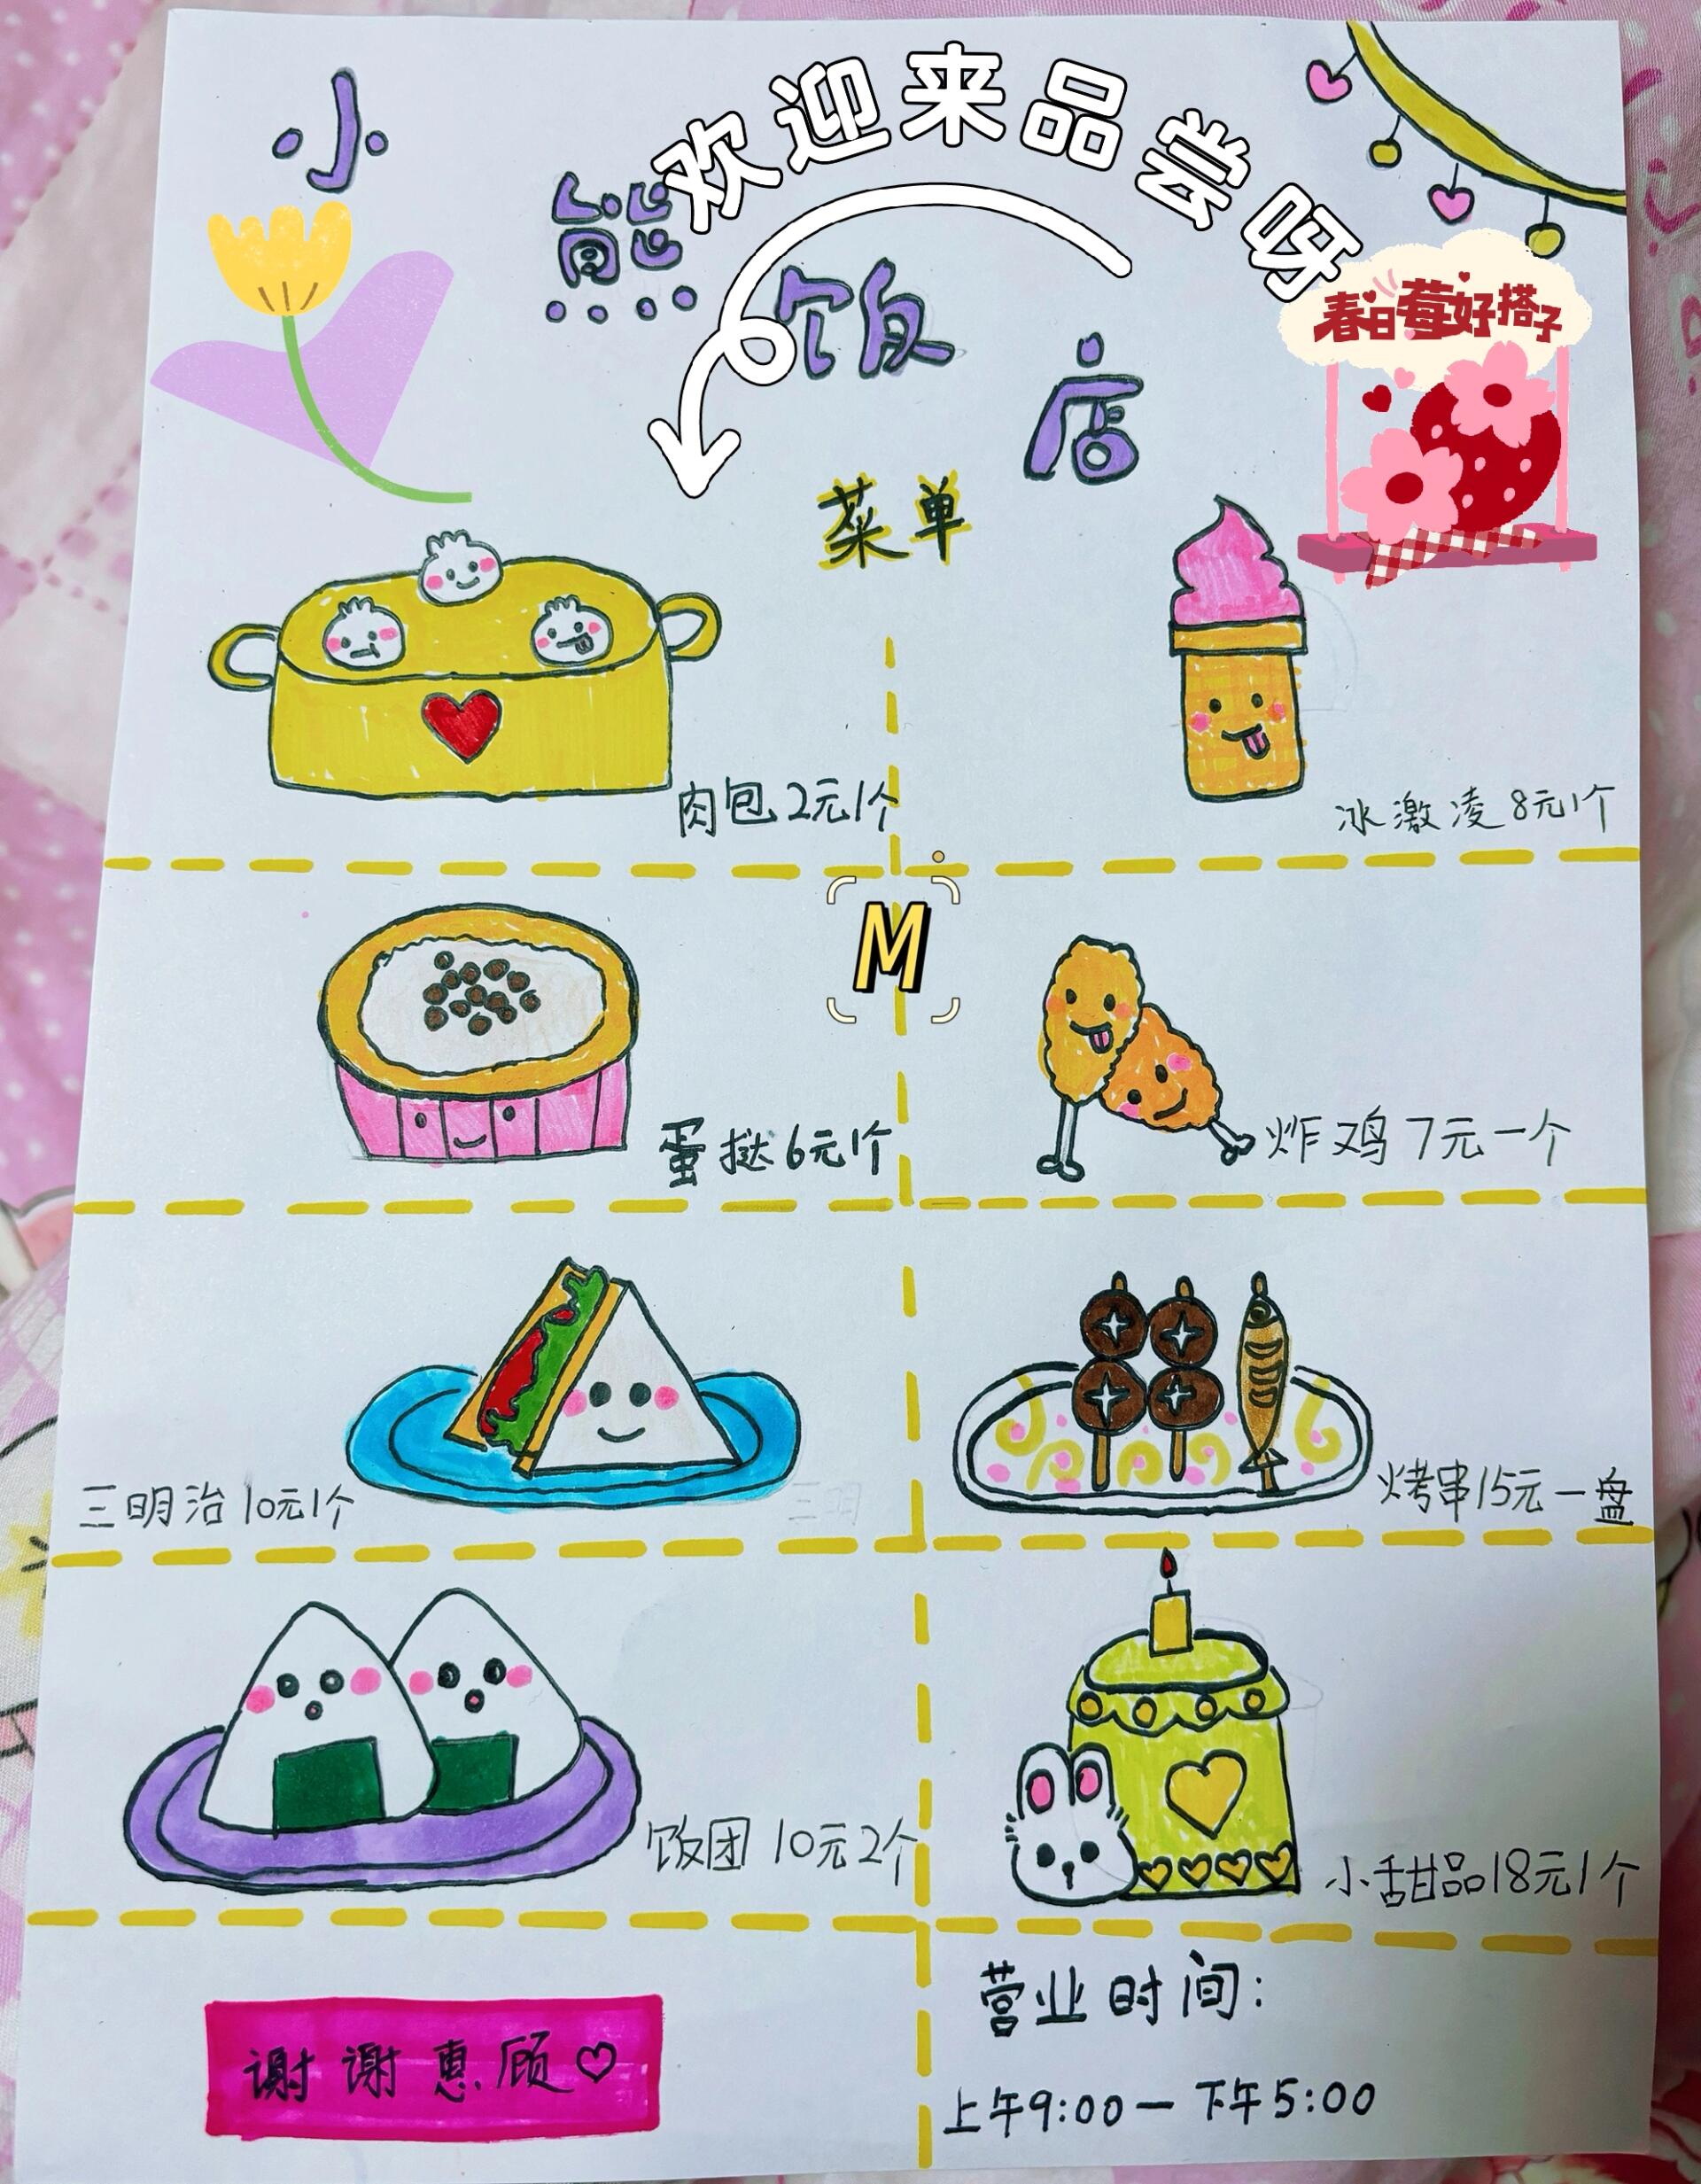 欢迎来品尝呀
小熊饭店
春日莓好搭子
菜单
肉包2元1个
冰激凌8元1个
M
蛋挞6元1个
炸鸡7元一个
三明治10元1个
三明
烤串15元一盘
饭团 10元2个
小甜品18元1个
谢谢惠顾♡
营业时间:
上午9:00—下午5:00